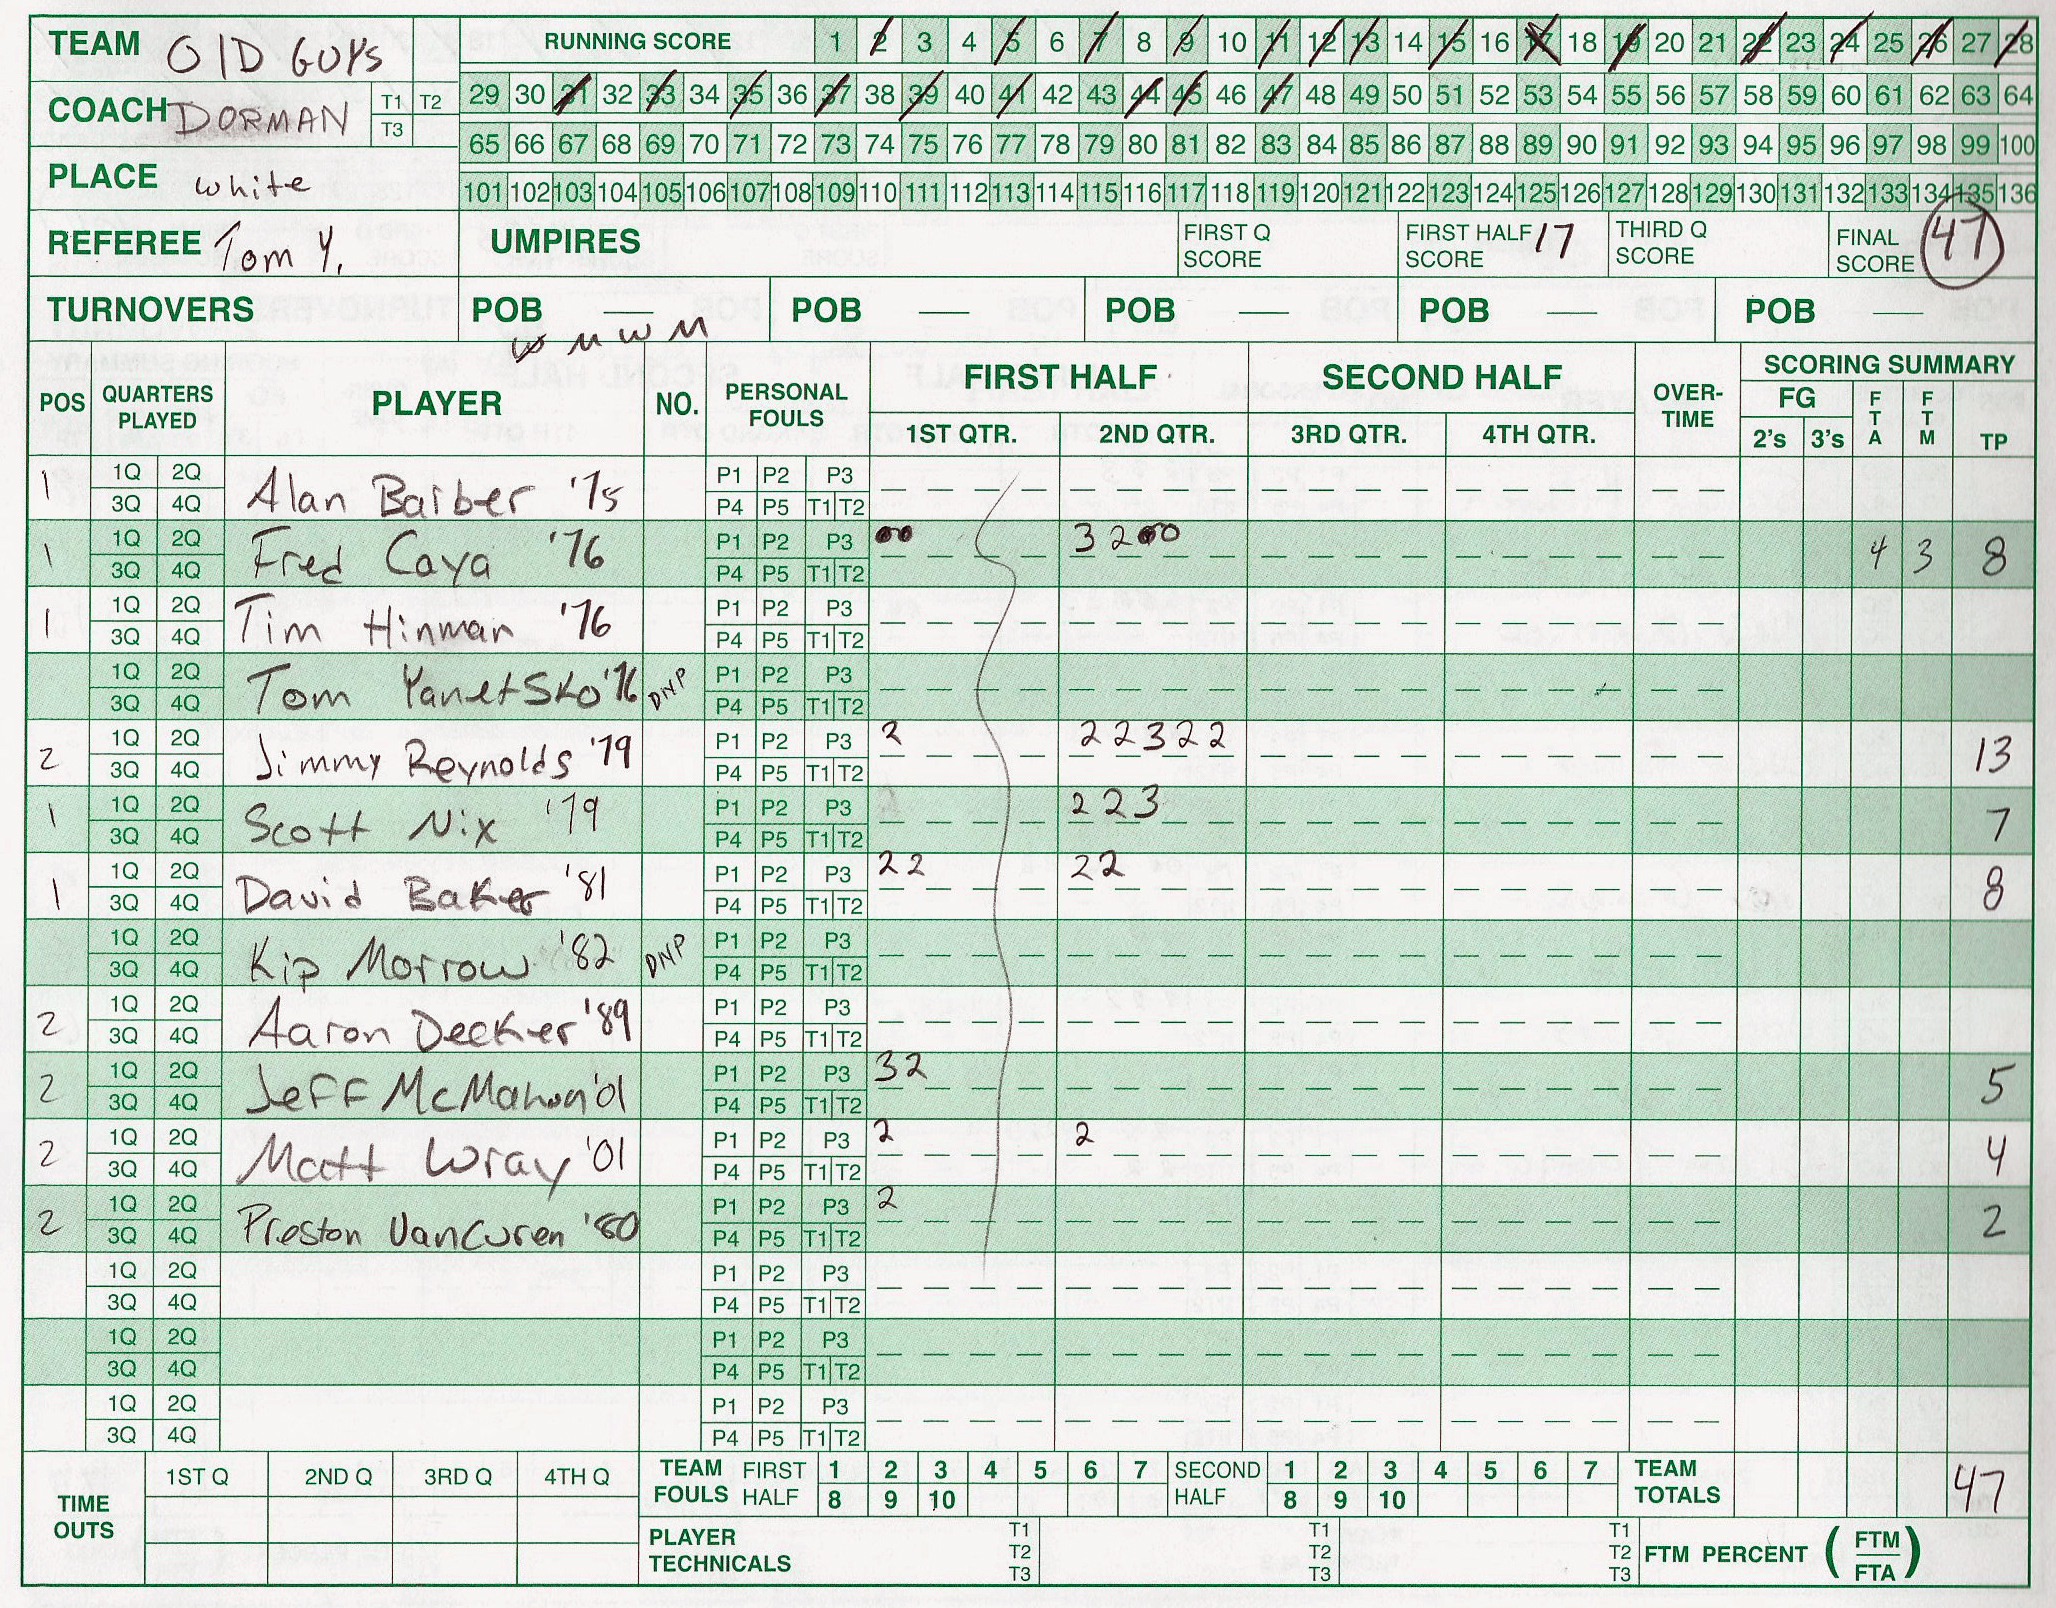 TEAM OlD GUYS RUNNING SCORE 1 2 3 4 5 6 7 8 9 10 11 12 13 14 15 16 17 18 19 20 21 22 23 24 25 26 27 28
COACH DORMAN T1 T2 T3 29 30 31 32 33 34 35 36 37 38 39 40 41 42 43 44 45 46 47 48 49 50 51 52 53 54 55 56 57 58 59 60 61 62 63 64
65 66 67 68 69 70 71 72 73 74 75 76 77 78 79 80 81 82 83 84 85 86 87 88 89 90 91 92 93 94 95 96 97 98 99 100
PLACE white 101 102 103 104 105 106 107 108 109 110 111 112 113 114 115 116 117 118 119 120 121 122 123 124 125 126 127 128 129 130 131 132 133 134 135 136
REFEREE Tom Y. UMPIRES FIRST Q SCORE FIRST HALF SCORE 17 THIRD Q SCORE FINAL SCORE 47
TURNOVERS POB — POB — POB — POB — POB —
W M W M
POS QUARTERS PLAYED PLAYER NO. PERSONAL FOULS FIRST HALF SECOND HALF OVER-TIME SCORING SUMMARY
1ST QTR. 2ND QTR. 3RD QTR. 4TH QTR. FG 2's 3's FTA FTM TP
1 1Q 2Q 3Q 4Q Alan Barber '75 P1 P2 P3 P4 P5 T1 T2
1 1Q 2Q 3Q 4Q Fred Caya '76 P1 P2 P3 P4 P5 T1 T2 00 3 2 0 0 4 3 8
1 1Q 2Q 3Q 4Q Tim Hinman '76 P1 P2 P3 P4 P5 T1 T2
1Q 2Q 3Q 4Q Tom YanetSko '76 DNP P1 P2 P3 P4 P5 T1 T2
2 1Q 2Q 3Q 4Q Jimmy Reynolds '79 P1 P2 P3 P4 P5 T1 T2 2 2 2 3 2 2 13
1 1Q 2Q 3Q 4Q Scott Nix '79 P1 P2 P3 P4 P5 T1 T2 2 2 3 7
1 1Q 2Q 3Q 4Q David Baker '81 P1 P2 P3 P4 P5 T1 T2 2 2 2 2 8
1Q 2Q 3Q 4Q Kip Morrow '82 DNP P1 P2 P3 P4 P5 T1 T2
2 1Q 2Q 3Q 4Q Aaron Decker '89 P1 P2 P3 P4 P5 T1 T2
2 1Q 2Q 3Q 4Q Jeff McMahon '01 P1 P2 P3 P4 P5 T1 T2 3 2 5
2 1Q 2Q 3Q 4Q Matt Wray '01 P1 P2 P3 P4 P5 T1 T2 2 2 4
2 1Q 2Q 3Q 4Q Preston VanCuren '80 P1 P2 P3 P4 P5 T1 T2 2 2
1Q 2Q 3Q 4Q P1 P2 P3 P4 P5 T1 T2
1Q 2Q 3Q 4Q P1 P2 P3 P4 P5 T1 T2
1Q 2Q 3Q 4Q P1 P2 P3 P4 P5 T1 T2
TIME OUTS 1ST Q 2ND Q 3RD Q 4TH Q TEAM FOULS FIRST HALF 1 2 3 4 5 6 7 8 9 10 SECOND HALF 1 2 3 4 5 6 7 8 9 10 TEAM TOTALS 47
PLAYER TECHNICALS T1 T2 T3 T1 T2 T3 T1 T2 T3 FTM PERCENT (FTM/FTA)